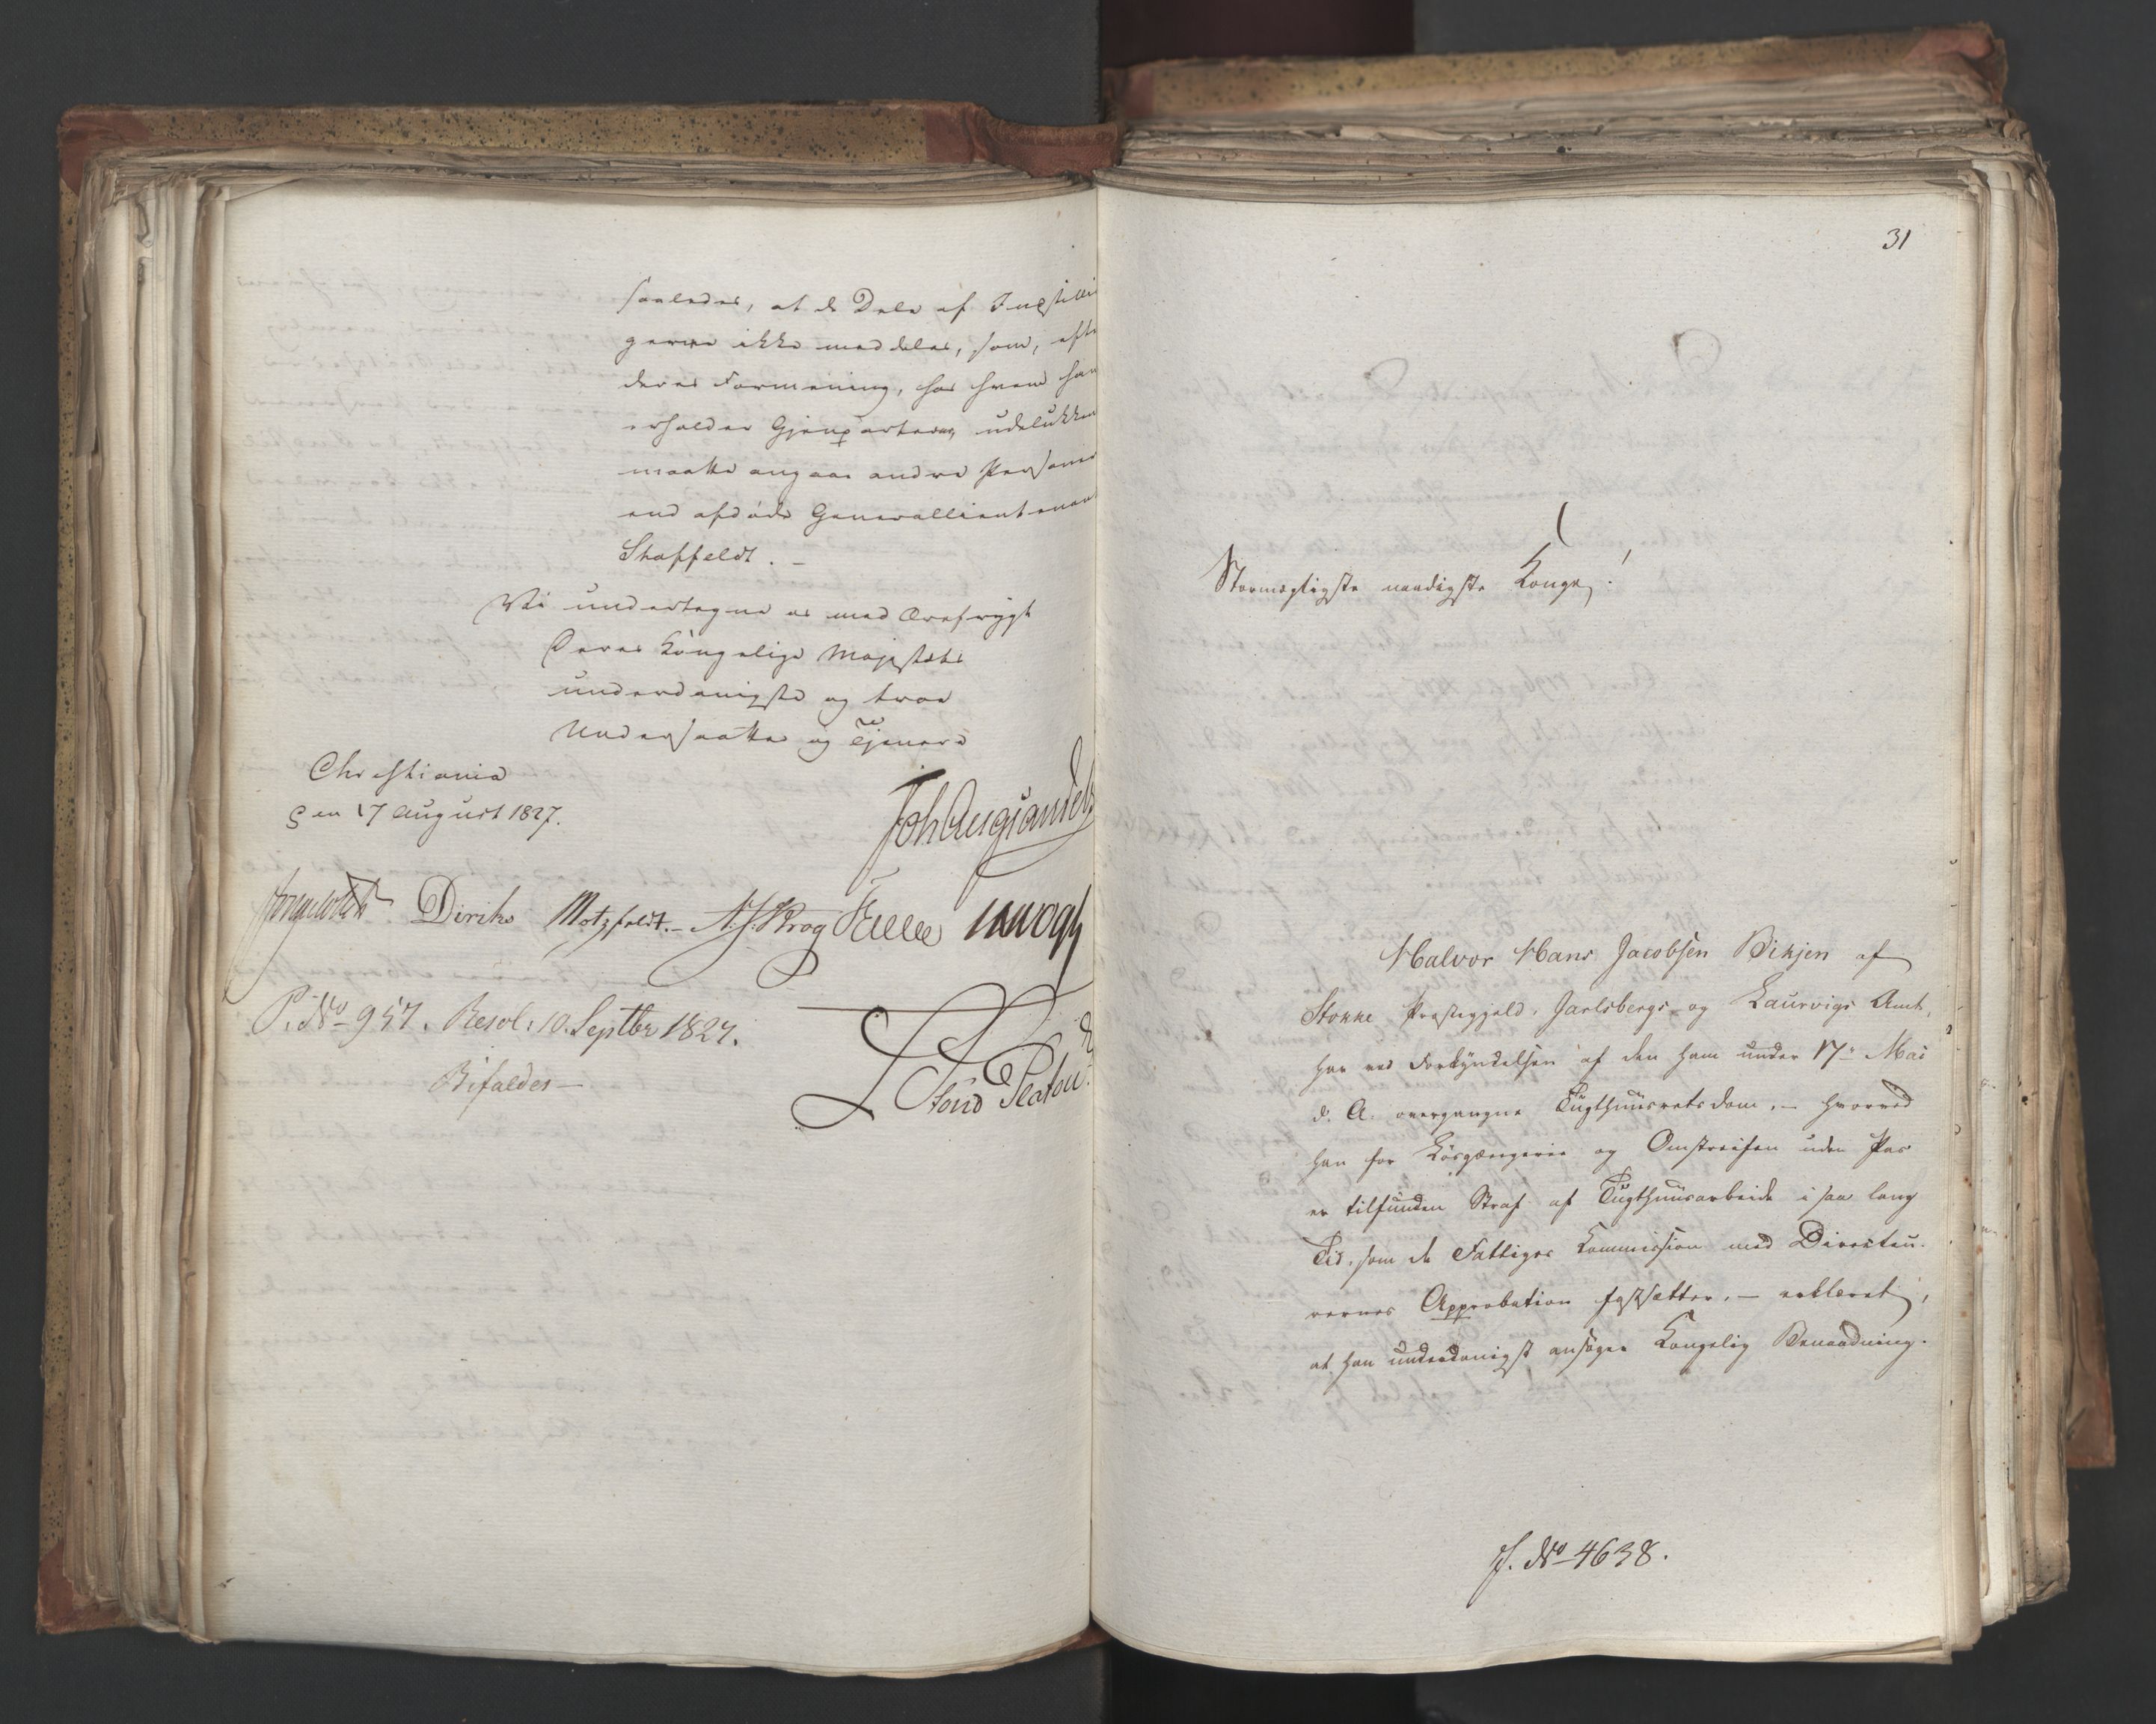 saaledes, at de Dele af Indstillin
gerne ikke meddeles, som, efter
deres Formening, hos hvem han
erholder Gjenparterne, udelukken
maatte angaae andre Personer
end afdøde Generallieutenant
Staffeldt. –
Vi undertegne os med Ærefrygt
Deres Kongelige Majestæts
underdanigste og troe
Undersaatter og Tjenere
Christiania
den 17 August 1827.
Joh Aug Sandels
Diriks Motzfeldt. – N. J. Krog
P. No 957. Resol: 10. Septbr 1827.
Bifaldes –
Platou
31
Stormægtigste naadigste Konge!
Halvor Hans Jacobsen Bikjen af
Stokke Præstegjeld, Jarlsbergs og Laurvigs Amt,
har ved Forkyndelsen af den ham under 17de Mai
d. A. overgangne Tugthuusretsdom, – hvorved
han for Løsgængerie og Omstreifen uden Pas
er tilfunden Straf af Tugthuusarbeide i saa lang
Tid, som de Fattiges Commission med Directeu-
rernes Approbation fastsætter, – erklæret,
at han underdanigst ansøger Kongelig Benaadning.
J. No 4638.